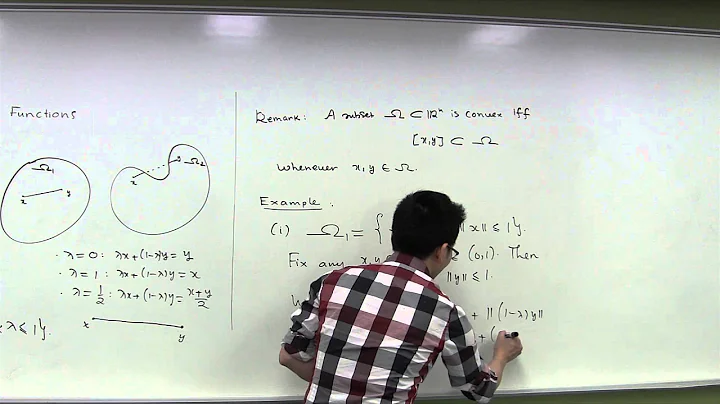 Functions
Ω₁
x y
x Ω₂
· λ=0: λx+(1-λ)y=y
· λ=1: λx+(1-λ)y=x
· λ=1/2: λx+(1-λ)y=x+y/2
x y
λ≤1}.
Remark: A subset Ω⊂ℝⁿ is convex iff
[x,y]⊂Ω
whenever x,y∈Ω.
Example:
(1) Ω₁={ ‖x‖≤1}.
Fix any x,y (0,1). Then
‖y‖≤1.
+ ‖(1-λ)y‖
+ (